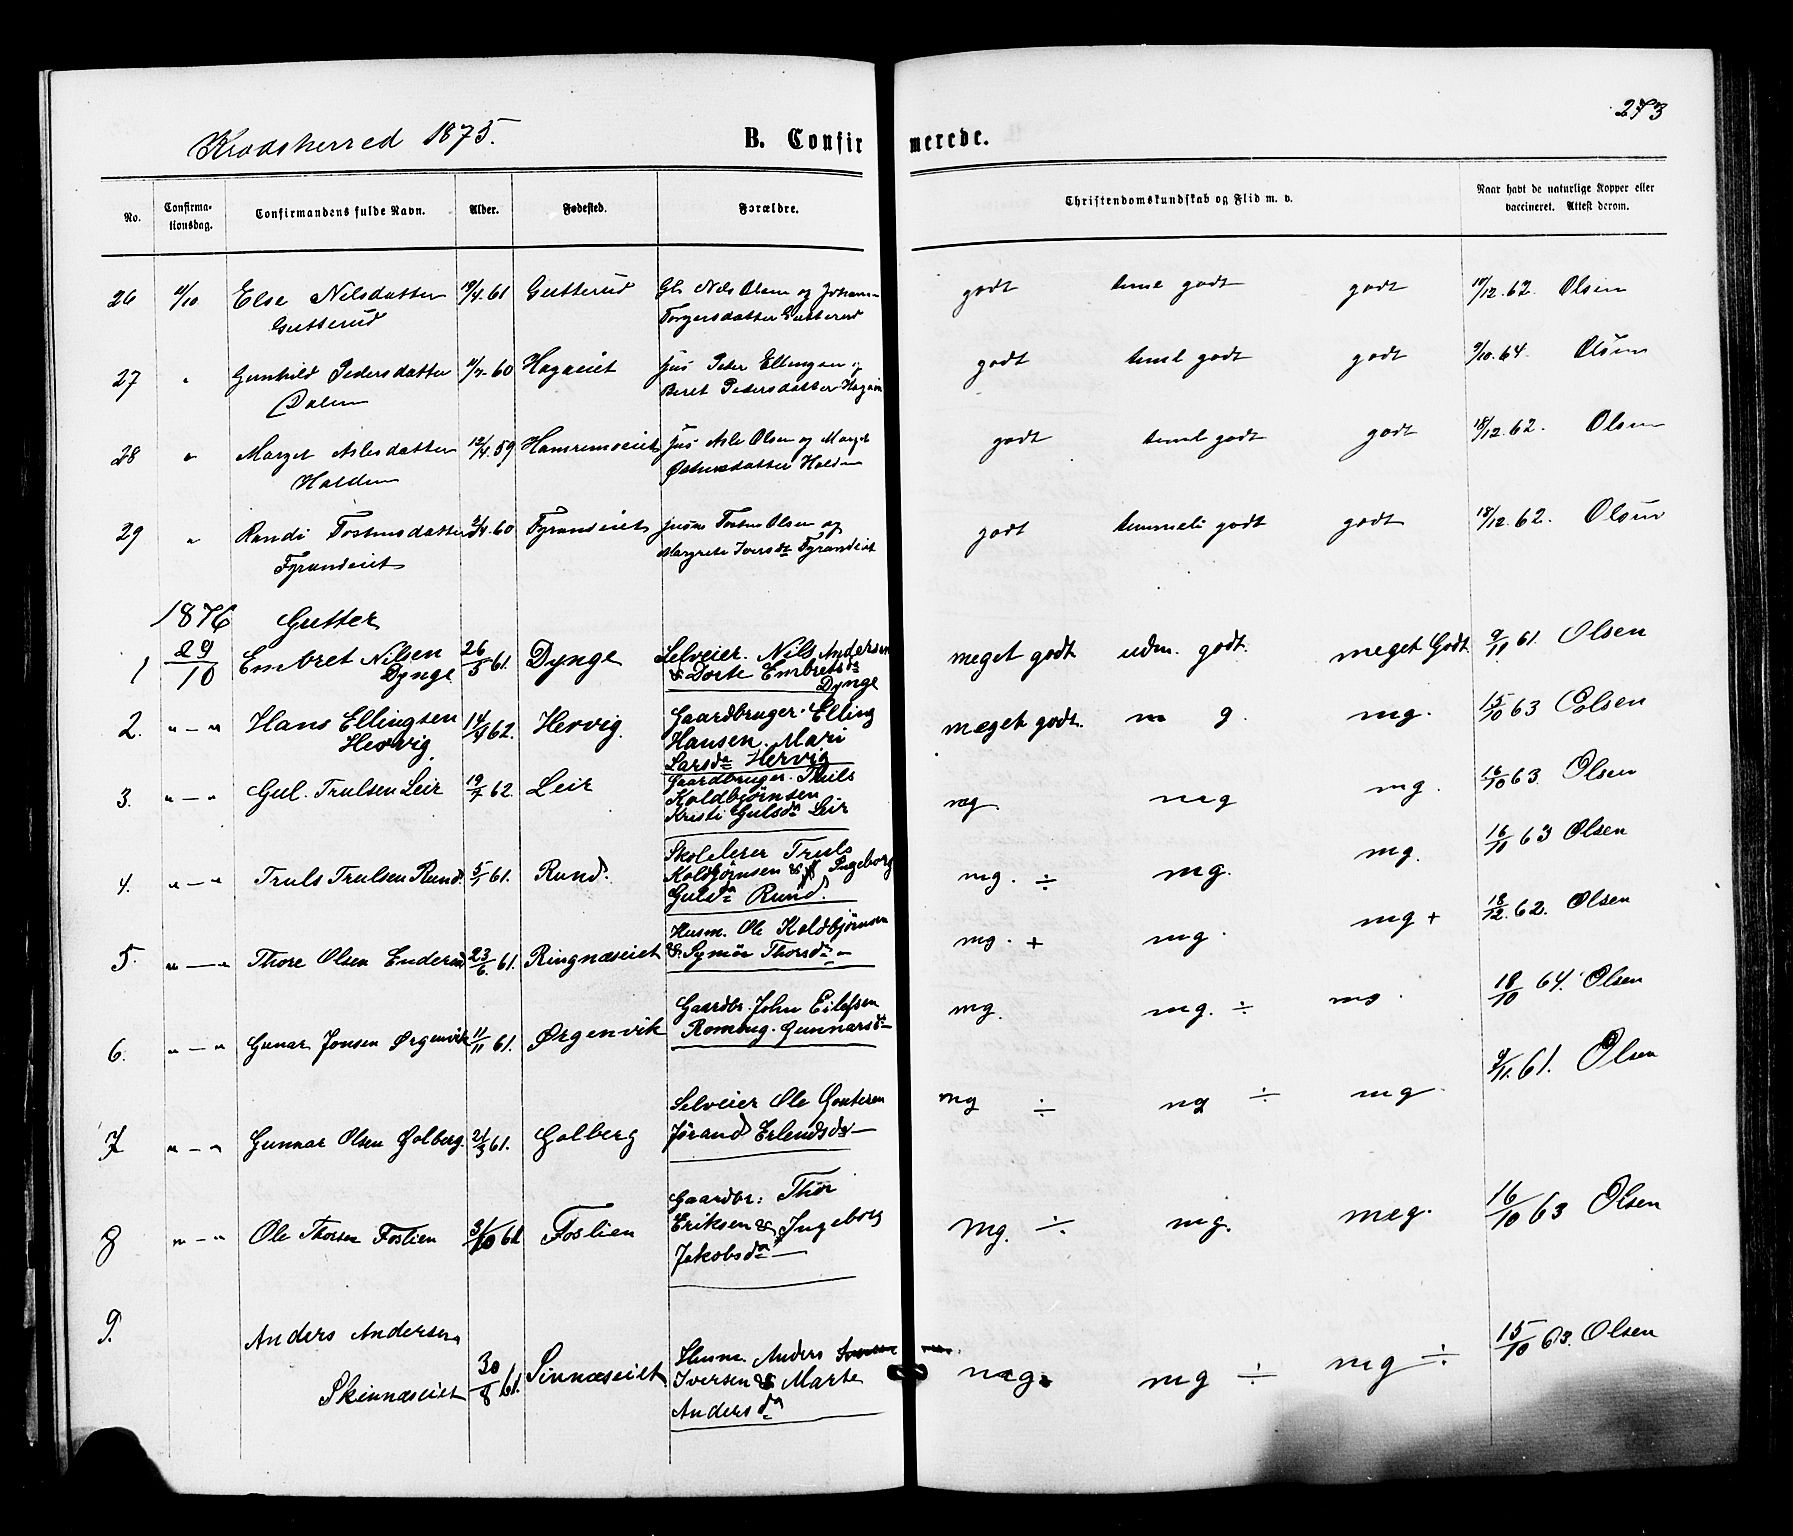 273
Krødsherred 1875.
B. Confirmerede.
No. Confirmationsdag. Confirmandens fulde Navn. Alder. Fødested. Forældre. Christendomskundskab og Flid m. v. Naar havt de naturlige Kopper eller vaccineret. Attest derom.
26 Else Nilsdatter Gutterud Gutterud Nils Olsen og Torgersdatter Gutterud godt teml godt godt 18/12.62. Olsen
27 " Gunhild Pedersdatter Dalen Hagaeiet Peder Ellingsen og Beret Pedersdatter godt teml godt godt 9/10.64. Olsen
28 " Marget Aslesdatter Halden 12/4.59 Asle Olsen og Marget godt teml godt godt 18/12.62. Olsen
29 " Randi Tostensdatter Fyrandeiet Fyrandeiet Tosten Olsen og Margrete Iversda Fyrandeiet godt temmeli godt godt 18/12.62. Olsen
1876 Gutter
1 29/10 Embret Nilsen Dynge 26/5 61. Dynge Selveier. Nils Andersen & Dorte Embretsda Dynge meget godt udm. godt. meget Godt 9/11 61. Olsen
2. " — " Hans Ellingsen Hervig 14/9 62. Hervig. Gaardbruger. Elling Hansen. Mari Larsda Hervig meget godt. m g. mg. 15/10 63 Olsen
3. " — " Gul. Trulsen Leir 19/7 62. Leir Gaardbruger. Truls Koldbjørnsen Kristi Gulsda Leir mg mg mg. 16/10 63. Olsen
4. " — " Truls Trulsen Rund. 5/1 61. Rund. Skolelerer Truls Koldbjørnsen & Ingeborg Gulsda Rund. mg. ÷ mg. mg. 16/10 63 Olsen
5. " — " Thore Olsen Enderud 23/6. 61. Ringnæseiet Husm. Ole Koldbjørnsen &. Symør Thorsda — mg. + mg. mg + 18/12. 62. Olsen
6. " — " Gunar Jonsen Ørgenvik 11/11 61. Ørgenvik Gaardbr. John Eilefsen Gunnarsda — mg. mg. ÷ mg. 18/10 64. Olsen
7 " — " Gunnar Olsen Golberg. 21/3 61. Golberg Selveier Ole Jørand Erlendsda — mg ÷ mg ÷ mg. 9/11. 61. Olsen
8 " — " Ole Thorsen Foslien 31/10 61 Foslien Gaardbr: Thor Eriksen & Ingeborg Jakobsda — mg. ÷ mg. meg. 16/10 63 Olsen
9. Anders Andersen Skinnæseiet 30/8 61. Sinnæseiet Husm. Anders Iversen & Marte Andersda meg. mg ÷ mg ÷ 15/10 63. Olsen